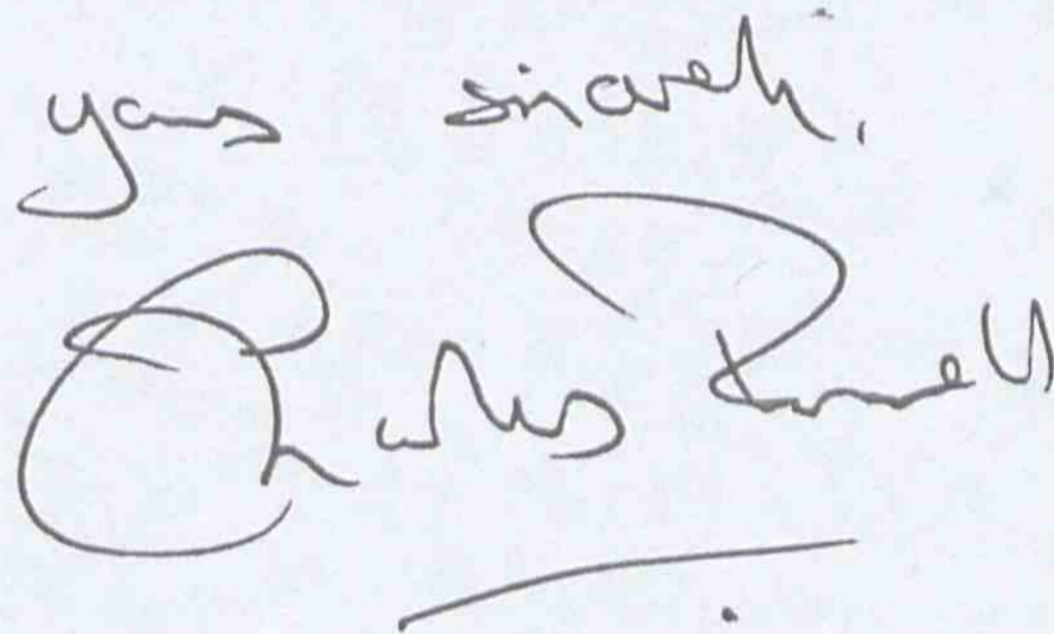 yours sincerely,
Charles Powell